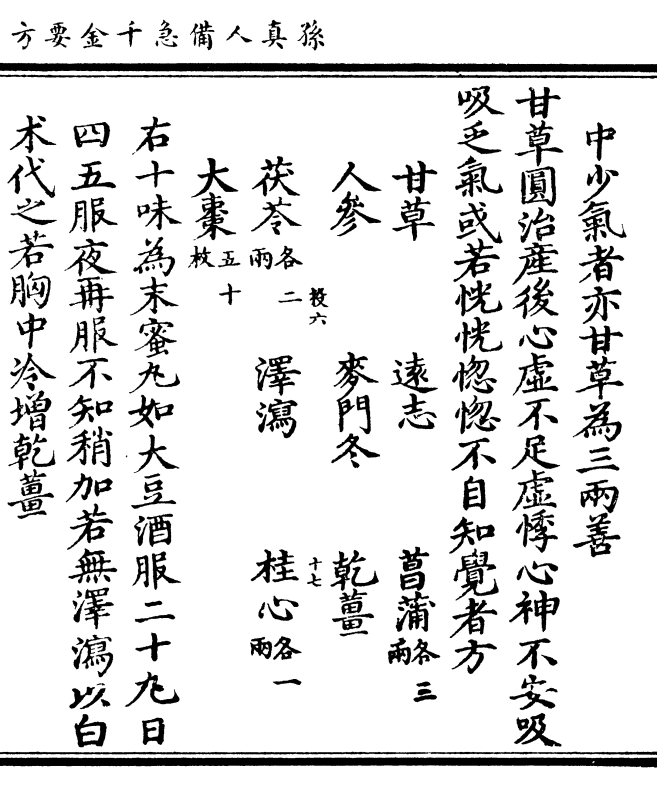 孫真人備急千金要方
中少氣者亦甘草為三兩善
甘草圓治産後心虛不足虛悸心神不安吸
吸乏氣或若恍恍惚惚不自知覺者方
甘草 遠志 菖蒲各三兩
人參 麥門冬 乾薑
茯苓各二兩 澤瀉 桂心各一兩
大棗五十枚
右十味為末蜜丸如大豆酒服二十丸日
四五服夜再服不知稍加若無澤瀉以白
术代之若胸中冷增乾薑
投六
十七